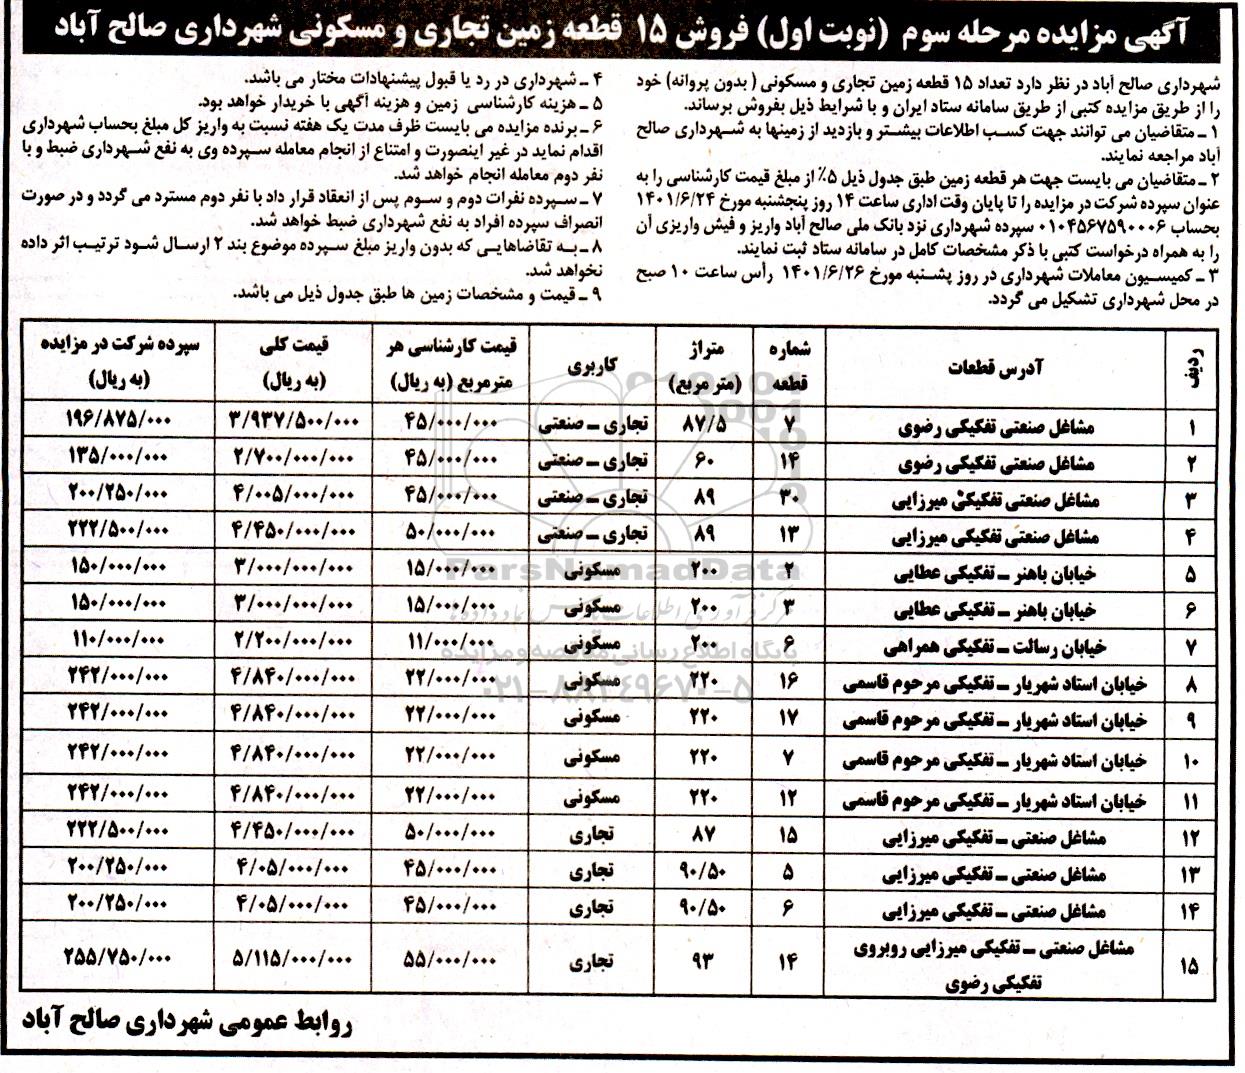 آگهی مزایده مرحله سوم (نوبت اول) فروش ۱۵ قطعه زمین تجاری و مسکونی شهرداری صالح آباد
شهرداری صالح آباد در نظر دارد تعداد ۱۵ قطعه زمین تجاری و مسکونی ( بدون پروانه) خود
را از طریق مزایده کتبی از طریق سامانه ستاد ایران و با شرایط ذیل بفروش برساند.
۱ ـ متقاضیان می توانند جهت کسب اطلاعات بیشتر و بازدید از زمینها به شهرداری صالح
آباد مراجعه نمایند.
۲ ـ متقاضیان می بایست جهت هر قطعه زمین طبق جدول ذیل ۵٪ از مبلغ قیمت کارشناسی را به
عنوان سپرده شرکت در مزایده را تا پایان وقت اداری ساعت ۱۴ روز پنجشنبه مورخ ۱۴۰۱/۶/۲۴
بحساب ۰۱۰۴۵۶۷۵۹۰۰۰۶ سپرده شهرداری نزد بانک ملی صالح آباد واریز و فیش واریزی آن
را به همراه درخواست کتبی با ذکر مشخصات کامل در سامانه ستاد ثبت نمایند.
۳ ـ کمیسیون معاملات شهرداری در روز پشنبه مورخ ۱۴۰۱/۶/۲۶ رأس ساعت ۱۰ صبح
در محل شهرداری تشکیل می گردد.
۴ ـ شهرداری در رد یا قبول پیشنهادات مختار می باشد.
۵ ـ هزینه کارشناسی زمین و هزینه آگهی با خریدار خواهد بود.
۶ ـ برنده مزایده می بایست ظرف مدت یک هفته نسبت به واریز کل مبلغ بحساب شهرداری
اقدام نماید در غیر اینصورت و امتناع از انجام معامله سپرده وی به نفع شهرداری ضبط و با
نفر دوم معامله انجام خواهد شد.
۷ ـ سپرده نفرات دوم و سوم پس از انعقاد قرار داد با نفر دوم مسترد می گردد و در صورت
انصراف سپرده افراد به نفع شهرداری ضبط خواهد شد.
۸ ـ به تقاضاهایی که بدون واریز مبلغ سپرده موضوع بند ۲ ارسال شود ترتیب اثر داده
نخواهد شد.
۹ ـ قیمت و مشخصات زمین ها طبق جدول ذیل می باشد.
ردیف آدرس قطعات شماره قطعه متراژ (متر مربع) کاربری قیمت کارشناسی هر مترمربع (به ریال) قیمت کلی (به ریال) سپرده شرکت در مزایده (به ریال)
۱ مشاغل صنعتی تفکیکی رضوی ۷ ۸۷/۵ تجاری ـ صنعتی ۴۵/۰۰۰/۰۰۰ ۳/۹۳۷/۵۰۰/۰۰۰ ۱۹۶/۸۷۵/۰۰۰
۲ مشاغل صنعتی تفکیکی رضوی ۱۴ ۶۰ تجاری ـ صنعتی ۴۵/۰۰۰/۰۰۰ ۲/۷۰۰/۰۰۰/۰۰۰ ۱۳۵/۰۰۰/۰۰۰
۳ مشاغل صنعتی تفکیکی میرزایی ۳۰ ۸۹ تجاری ـ صنعتی ۴۵/۰۰۰/۰۰۰ ۴/۰۰۵/۰۰۰/۰۰۰ ۲۰۰/۲۵۰/۰۰۰
۴ مشاغل صنعتی تفکیکی میرزایی ۱۳ ۸۹ تجاری ـ صنعتی ۵۰/۰۰۰/۰۰۰ ۴/۴۵۰/۰۰۰/۰۰۰ ۲۲۲/۵۰۰/۰۰۰
۵ خیابان باهنر ـ تفکیکی عطایی ۲ ۲۰۰ مسکونی ۱۵/۰۰۰/۰۰۰ ۳/۰۰۰/۰۰۰/۰۰۰ ۱۵۰/۰۰۰/۰۰۰
۶ خیابان باهنر ـ تفکیکی عطایی ۳ ۲۰۰ مسکونی ۱۵/۰۰۰/۰۰۰ ۳/۰۰۰/۰۰۰/۰۰۰ ۱۵۰/۰۰۰/۰۰۰
۷ خیابان رسالت ـ تفکیکی همراهی ۶ ۲۰۰ مسکونی ۱۱/۰۰۰/۰۰۰ ۲/۲۰۰/۰۰۰/۰۰۰ ۱۱۰/۰۰۰/۰۰۰
۸ خیابان استاد شهریار ـ تفکیکی مرحوم قاسمی ۱۶ ۲۲۰ مسکونی ۲۲/۰۰۰/۰۰۰ ۴/۸۴۰/۰۰۰/۰۰۰ ۲۴۲/۰۰۰/۰۰۰
۹ خیابان استاد شهریار ـ تفکیکی مرحوم قاسمی ۱۷ ۲۲۰ مسکونی ۲۲/۰۰۰/۰۰۰ ۴/۸۴۰/۰۰۰/۰۰۰ ۲۴۲/۰۰۰/۰۰۰
۱۰ خیابان استاد شهریار ـ تفکیکی مرحوم قاسمی ۷ ۲۲۰ مسکونی ۲۲/۰۰۰/۰۰۰ ۴/۸۴۰/۰۰۰/۰۰۰ ۲۴۲/۰۰۰/۰۰۰
۱۱ خیابان استاد شهریار ـ تفکیکی مرحوم قاسمی ۱۲ ۲۲۰ مسکونی ۲۲/۰۰۰/۰۰۰ ۴/۸۴۰/۰۰۰/۰۰۰ ۲۴۲/۰۰۰/۰۰۰
۱۲ مشاغل صنعتی ـ تفکیکی میرزایی ۱۵ ۸۷ تجاری ۵۰/۰۰۰/۰۰۰ ۴/۴۵۰/۰۰۰/۰۰۰ ۲۲۲/۵۰۰/۰۰۰
۱۳ مشاغل صنعتی ـ تفکیکی میرزایی ۵ ۹۰/۵۰ تجاری ۴۵/۰۰۰/۰۰۰ ۴/۰۵/۰۰۰/۰۰۰ ۲۰۰/۲۵۰/۰۰۰
۱۴ مشاغل صنعتی ـ تفکیکی میرزایی ۶ ۹۰/۵۰ تجاری ۴۵/۰۰۰/۰۰۰ ۴/۰۵/۰۰۰/۰۰۰ ۲۰۰/۲۵۰/۰۰۰
۱۵ مشاغل صنعتی ـ تفکیکی میرزایی روبروی تفکیکی رضوی ۱۴ ۹۳ تجاری ۵۵/۰۰۰/۰۰۰ ۵/۱۱۵/۰۰۰/۰۰۰ ۲۵۵/۷۵۰/۰۰۰
روابط عمومی شهرداری صالح آباد
ParsNamadData
پایگاه اطلاع رسانی مناقصه و مزایده
۰۲۱-۸۸۳۴۹۶۷۰-۵